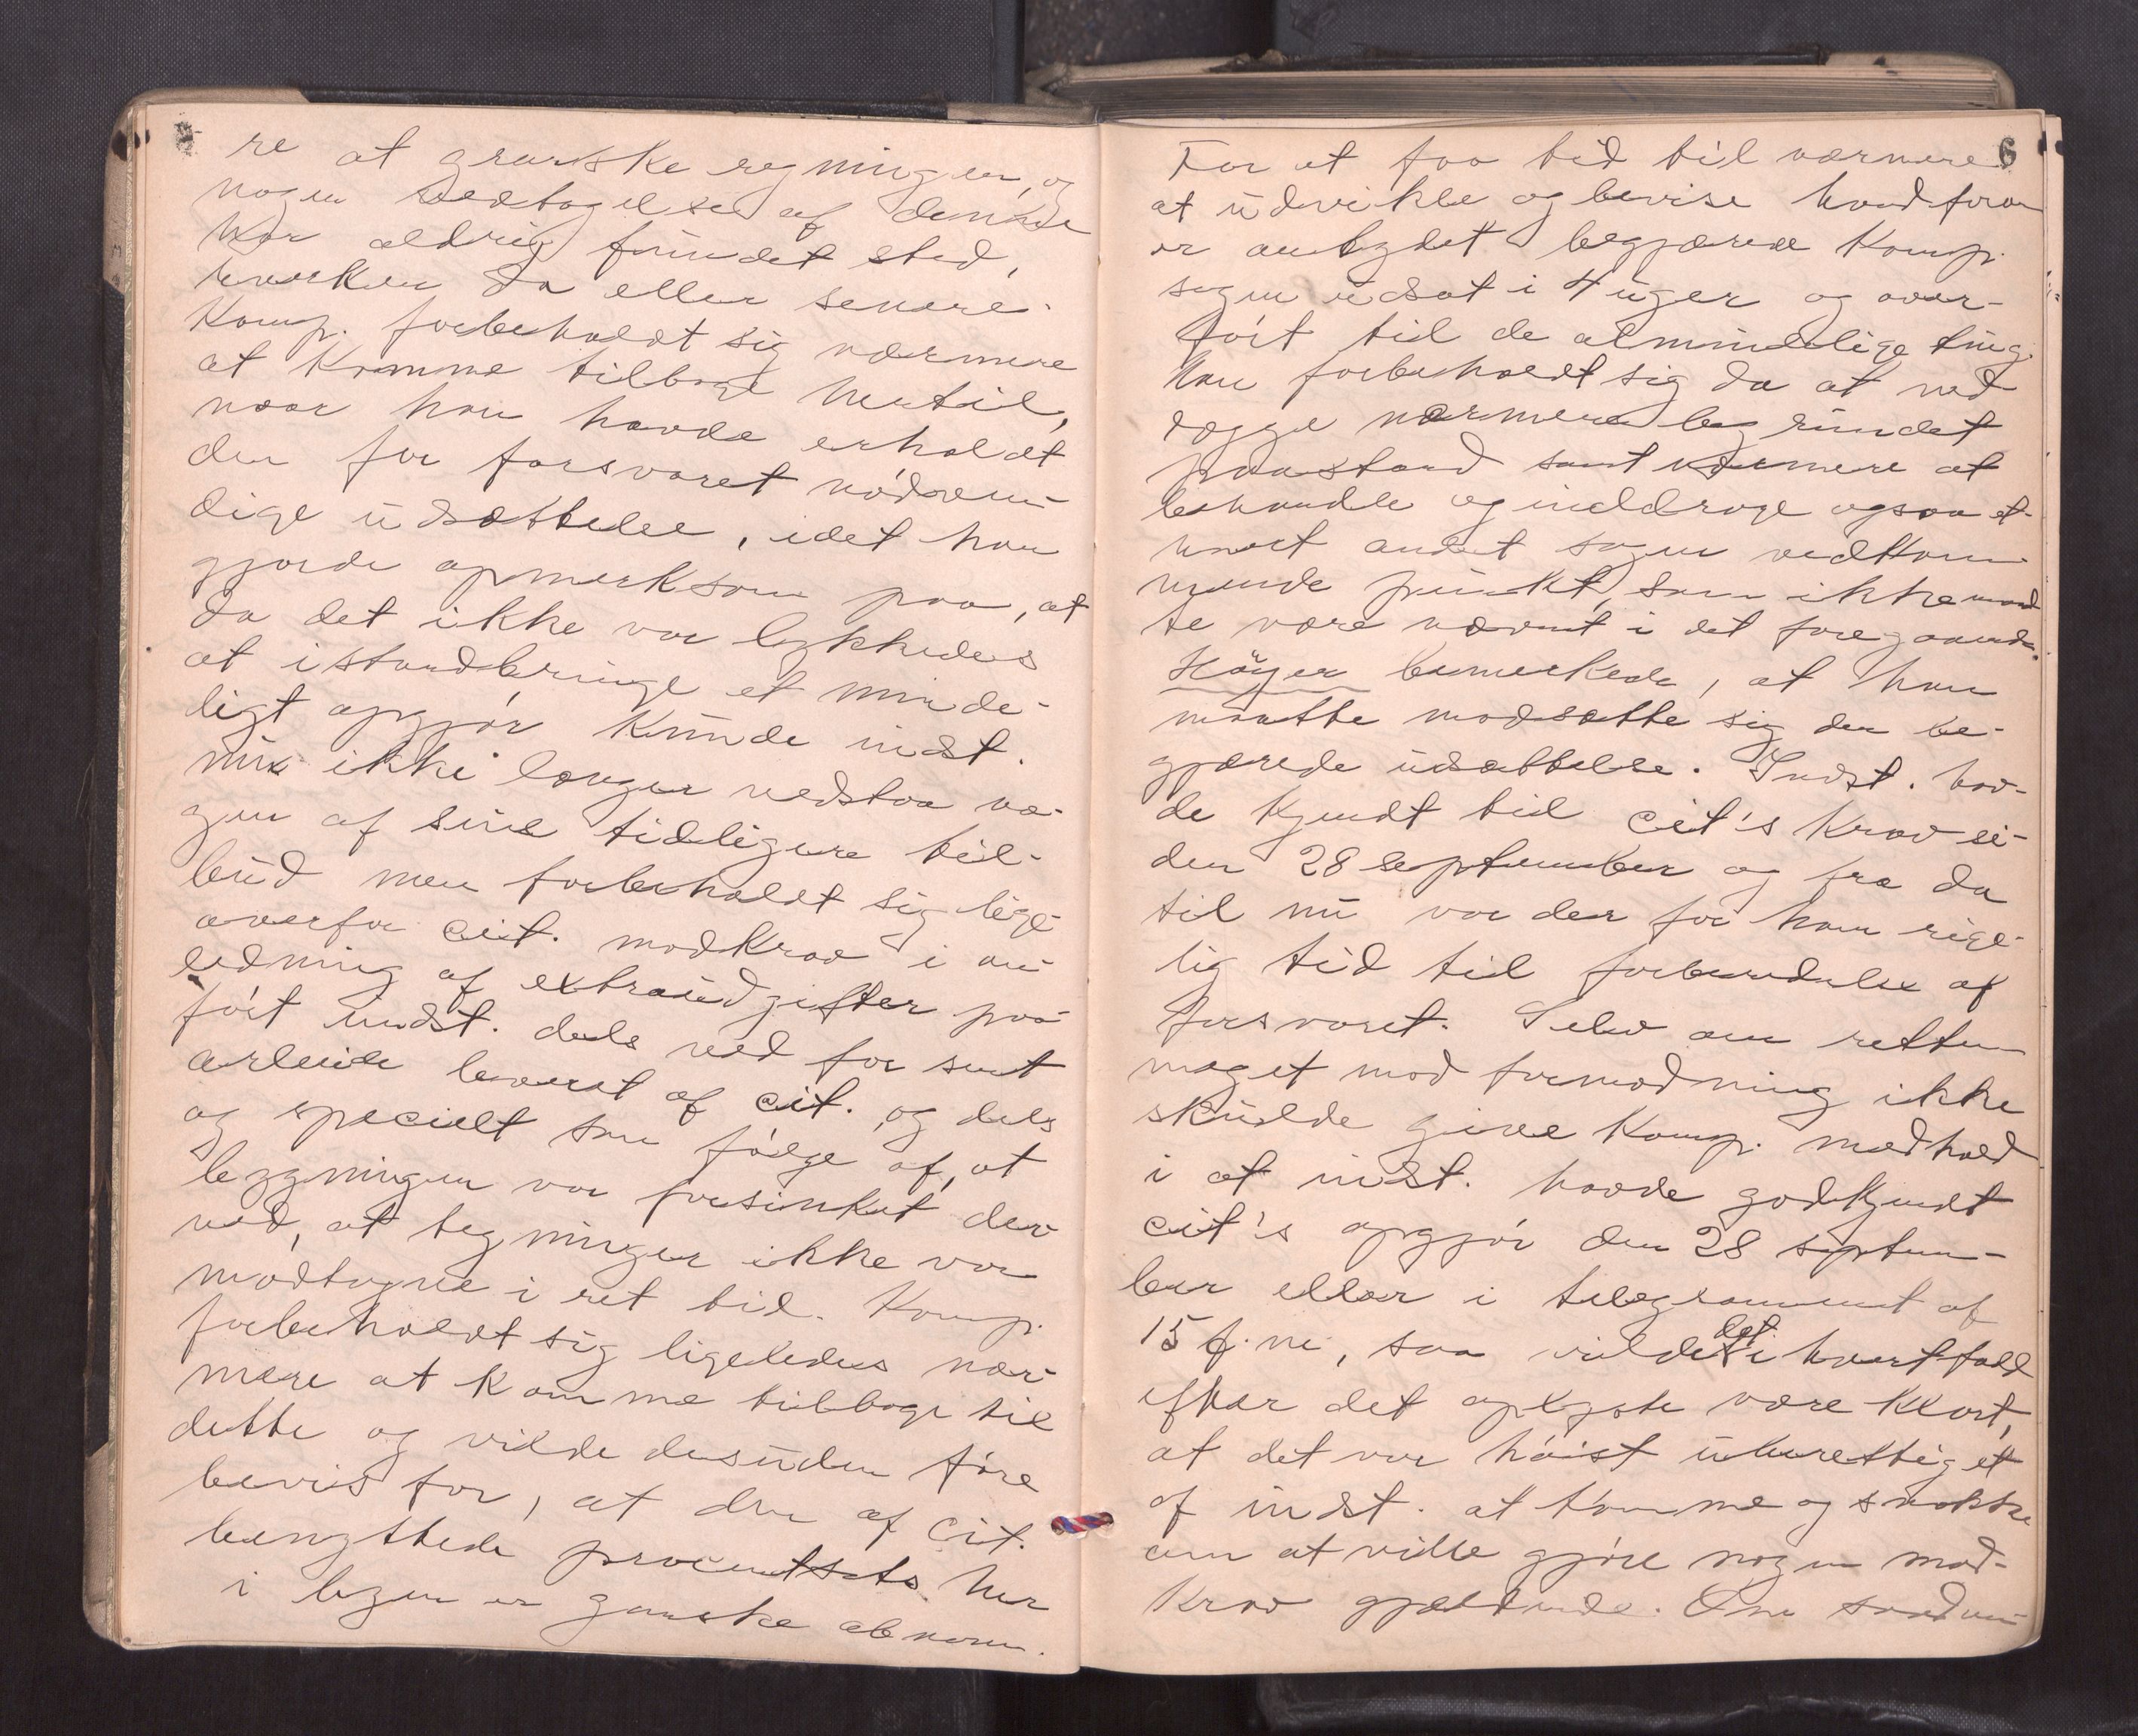 re at granske regningen, og
nogen vedtagelse af denne
har aldrig fundet sted,
hverken da eller senere.
Komp. forbeholdt sig nærmere
at komme tilbage hertil,
naar han havde erholdt
den for forsvaret nødven-
dige udsættelse, idet han
gjorde opmerksom paa, at
da det ikke var lykkedes
at istandbringe et minde-
ligt opgjør kunde indst.
nu ikke længer vedstaa no-
gen af sine tidligere til-
bud men forbeholdt sig lige-
overfor cit. modkrav i an-
ledning af extraudgifter paa-
ført indst. dels ved for sent
arbeide leveret af cit. og dels
og specielt som følge af, at
bygningen var forsinket der-
ved, at tegninger ikke var
modtagne i ret tid. Komp.
forbeholdt sig ligeledes nær-
mere at komme tilbage til
dette og vilde desuden føre
bevis for, at den af cit.
benyttede procentsats her
i byen er ganske abnorm.
6
For at faa tid til nærmere
at udvikle og bevise hvad foran
er antydet begjærede komp.
sagen udsat i 4 uger og over-
ført til de almindelige ting.
Han forbeholdt sig da at ned-
lægge nærmere begrundet
paastand samt nærmere at
behandle og inddrage ogsaa et-
hvert andet sagen vedkom-
mende punkt, som ikke maat-
te være nævnt i det foregaaende.
Høyer bemerkede, at han
maatte modsætte sig den be-
gjærede udsættelse. Indst. hav-
de kjendt til cit's krav si-
den 28 september og fra da
til nu var der for ham rige-
lig tid til forberedelse af
forsvaret. Selv om retten
meget mod formodning ikke
skulde give komp. medhold
i at indst. havde godkjendt
cit's opgjør den 28 septem-
ber eller i telegrammet af
15 f. m., saa vilde det i hvert fald
efter det oplyste være klart,
at det var høist uberettiget
af indst. at komme og snakke
om at ville gjøre nogen mod-
krav gjældende. Om saadan